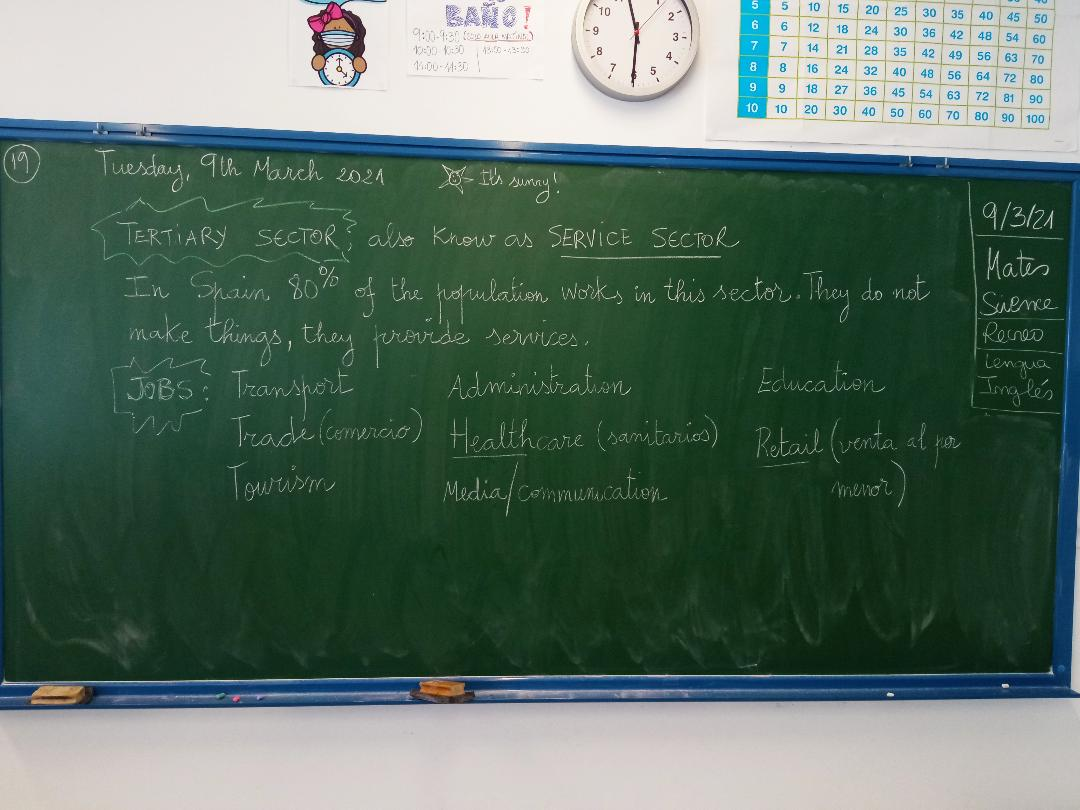 BAÑO!
9:00-9:30
10:00-10:30 13:00-13:30
11:00-11:30
10 2
9 3
8 4
7 6 5
5 5 10 15 20 25 30 35 40 45 50
6 6 12 18 24 30 36 42 48 54 60
7 7 14 21 28 35 42 49 56 63 70
8 8 16 24 32 40 48 56 64 72 80
9 9 18 27 36 45 54 63 72 81 90
10 10 20 30 40 50 60 70 80 90 100
19 Tuesday, 9th March 2021 It's sunny!
TERTIARY SECTOR; also know as SERVICE SECTOR
In Spain 80% of the population works in this sector. They do not
make things, they provide services.
JOBS: Transport Administration Education
Trade (comercio) Healthcare (sanitarios) Retail (venta al por
Tourism Media/communication menor)
9/3/21
Mates
Science
Recreo
Lengua
Inglés